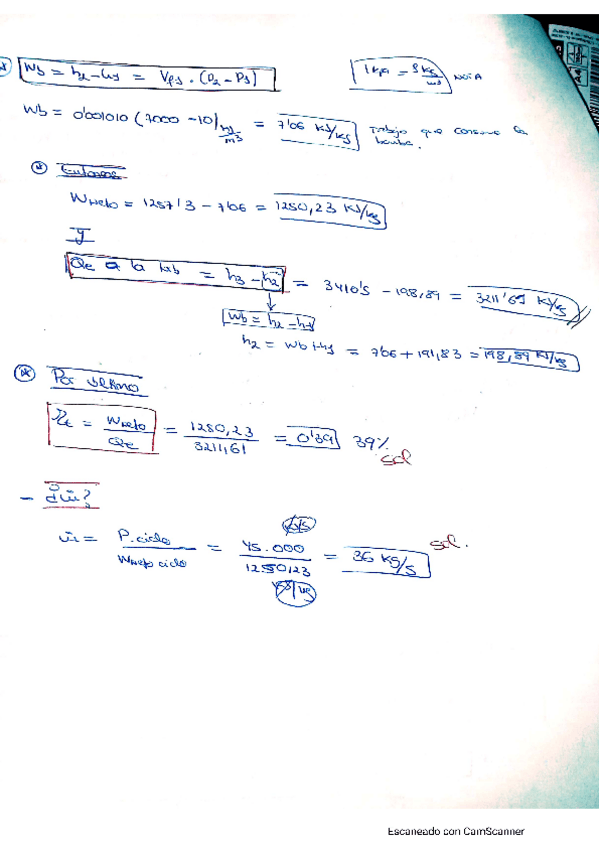 Wb = h2 - h1 = Vf1 · (P2 - P1)
NOTA
Wb = 0'001010 (7000 - 10) = 7'06 KJ/kg Trabajo que consume la bomba.
Entonces
Wneto = 1257'3 - 7'06 = 1250,23 KJ/kg
y
Qe a la = h3 - h2 = 3410'5 - 198,89 = 3211'61 KJ/kg
Wb = h2 - h1
h2 = Wb + h1 = 7'06 + 191,83 = 198,89 KJ/kg
Por último
= Wneto / Qe = 1250,23 / 3211,61 = 0'39 39% sol
- ¿ṁ?
ṁ = P.ciclo / Wneto ciclo = 45.000 / 1250,23 = 36 KG/s sol.
Escaneado con CamScanner